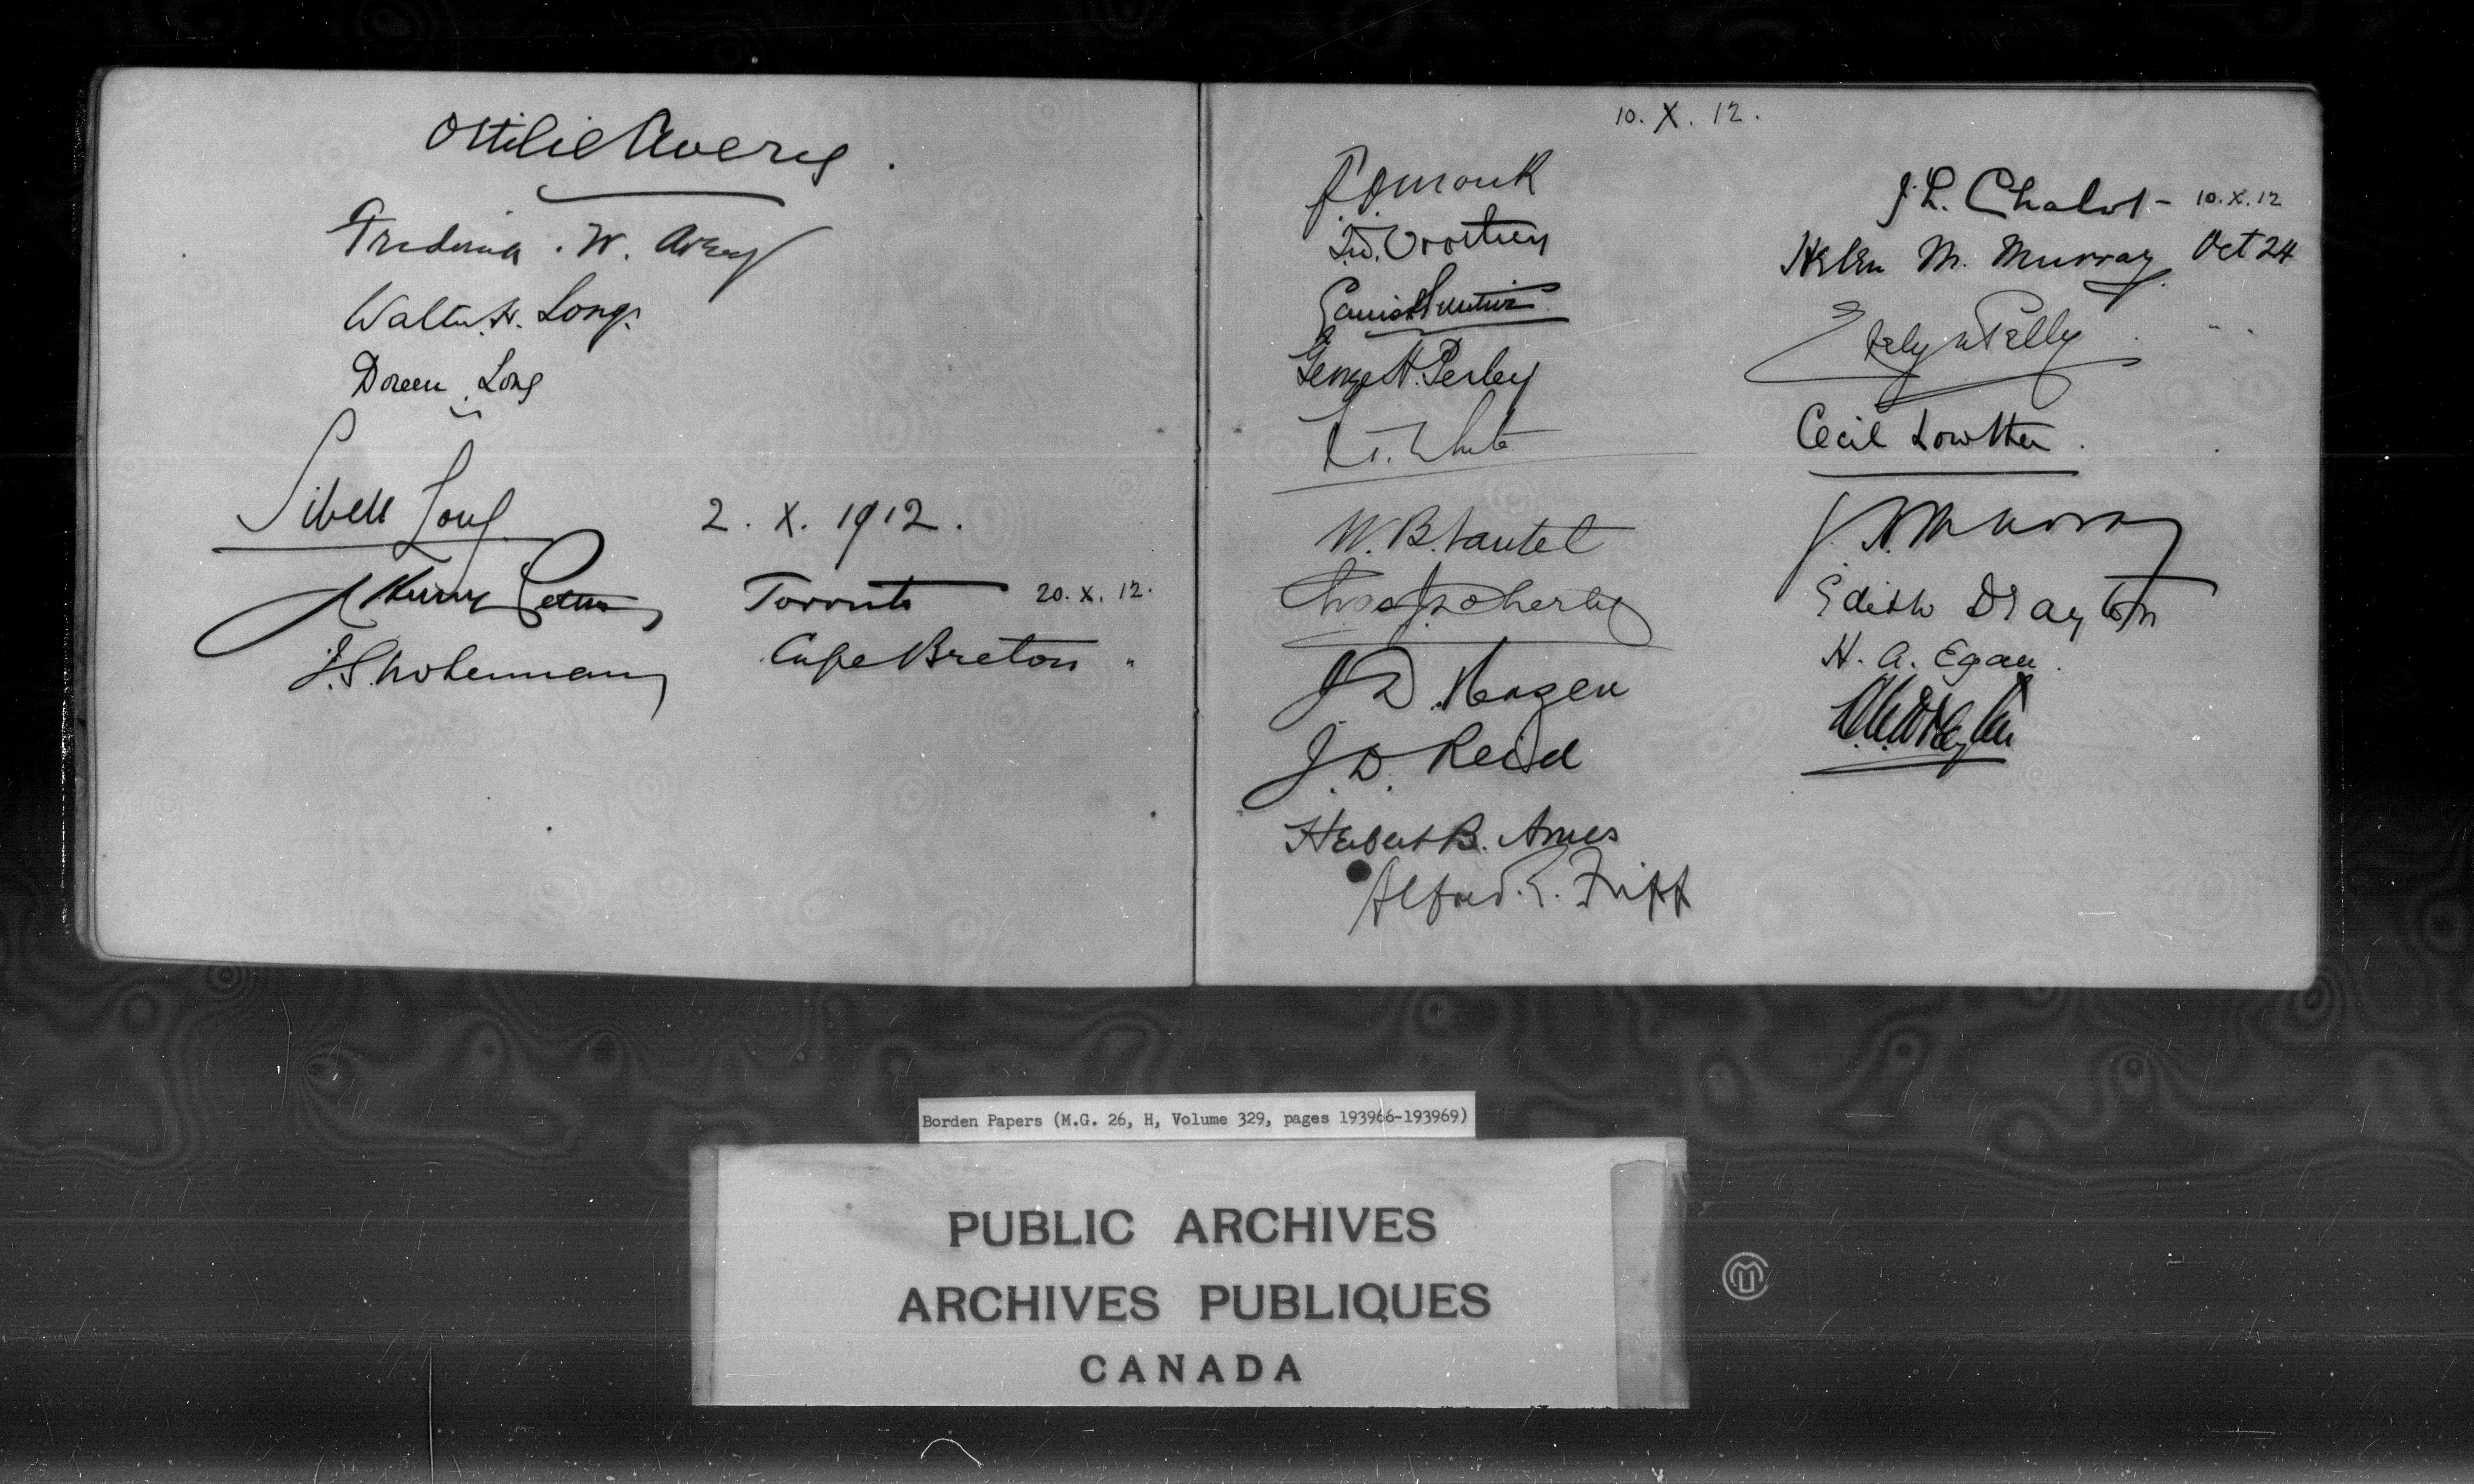 Ottilie Avery.
Frederick . W. Avery
Walter H. Long.
Doreen Long
Sibell Long 2. X. 1912.
Toronto 20. X. 12.
Cape Breton "
10. X. 12.
F D Monk
T.W. Crothers
George H. Perley
W. T. White
W. B. Nantel
Chas J Doherty
J D. Hazen
J. D. Reid
Herbert B. Ames
Alfred. E. Fripp
J. L. Chabot - 10. X. 12
Helen M. Murray Oct 24
Evelyn Pelly " "
Cecil Lowther .
Murray
Edith Drayton
H. A. Egan .
Drayton
Borden Papers (M.G. 26, H, Volume 329, pages 193966-193969)
PUBLIC ARCHIVES
ARCHIVES PUBLIQUES
CANADA